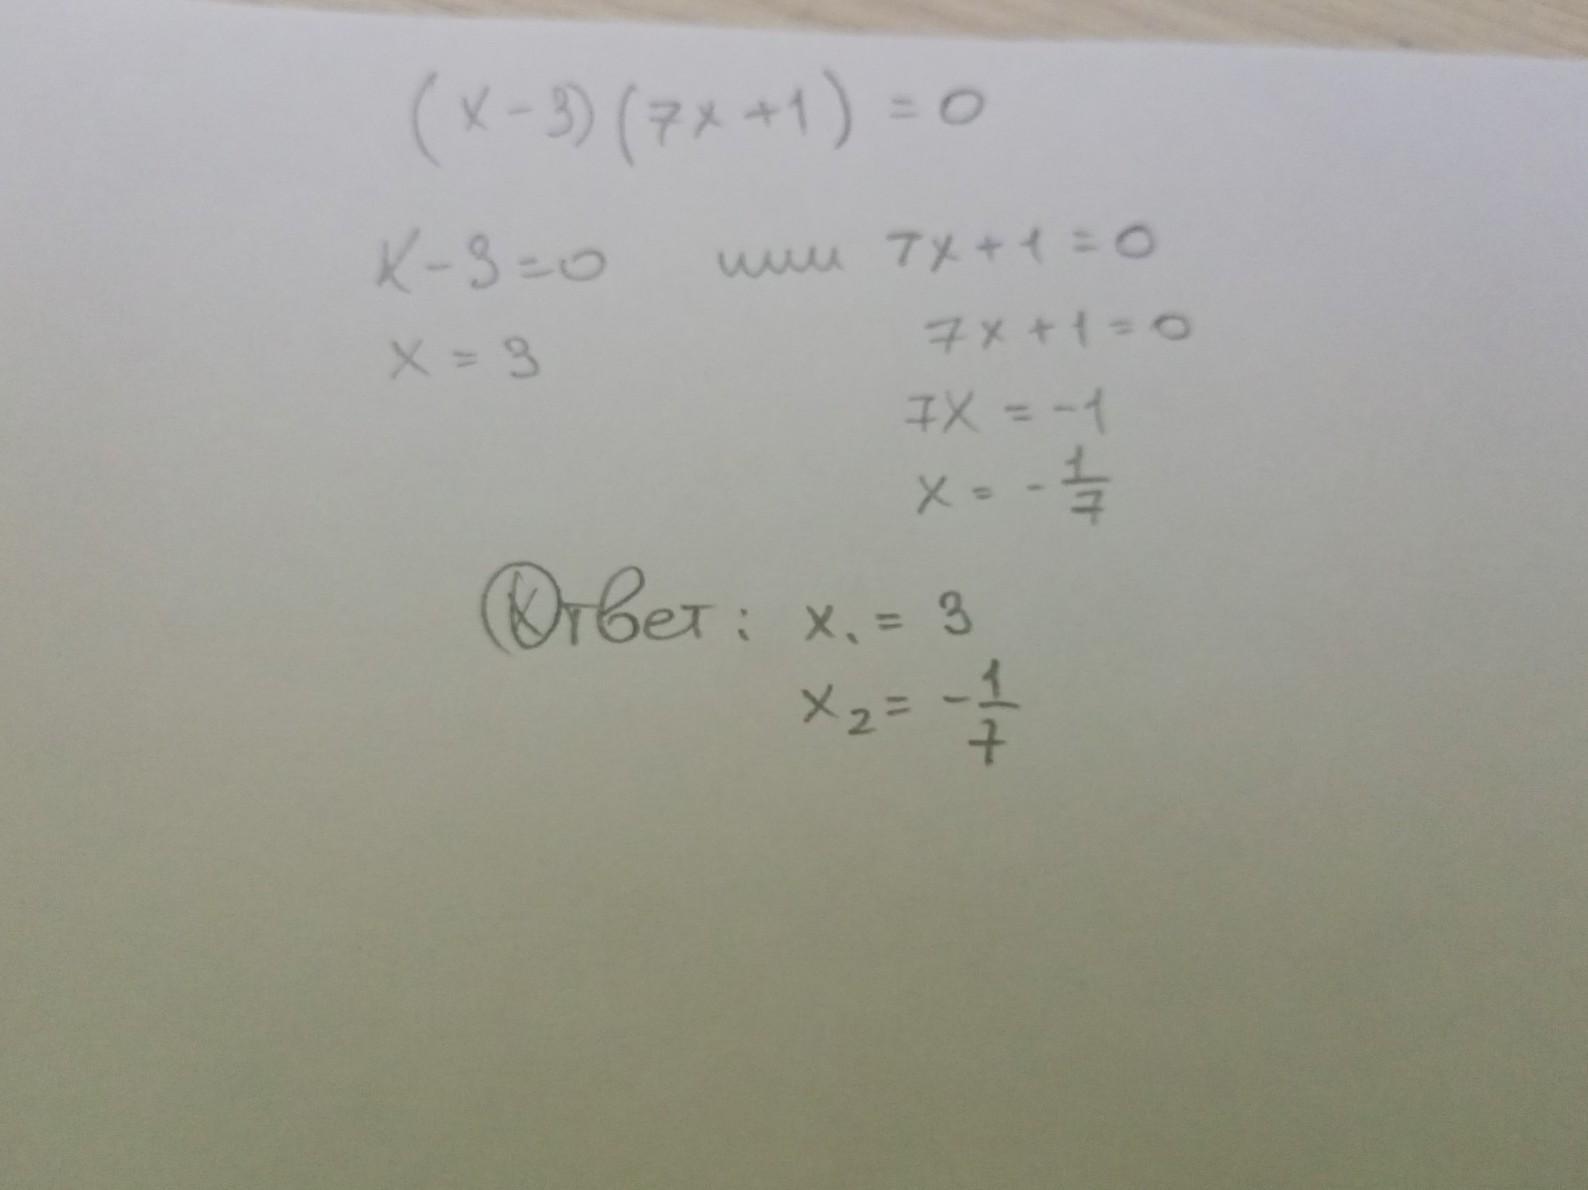 (x-3)(7x+1) = 0
x-3=0 или 7x+1=0
x = 3 7x+1=0
7x = -1
x = - 1/7
Ответ: x₁ = 3
x₂ = - 1/7